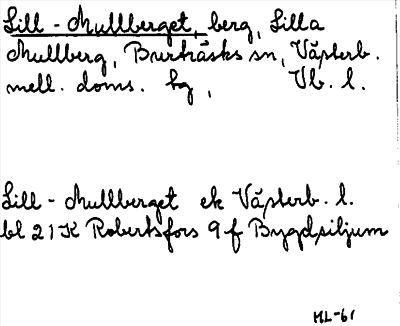 Lill-Mullberget, berg, Lilla
Mullberg, Burträsks sn, Västerb.
mell. doms. hg, Vb. l.
Lill-Mullberget ek Västerb. l.
bl 21K Robertsfors 9f Bygdsiljum
ML-61